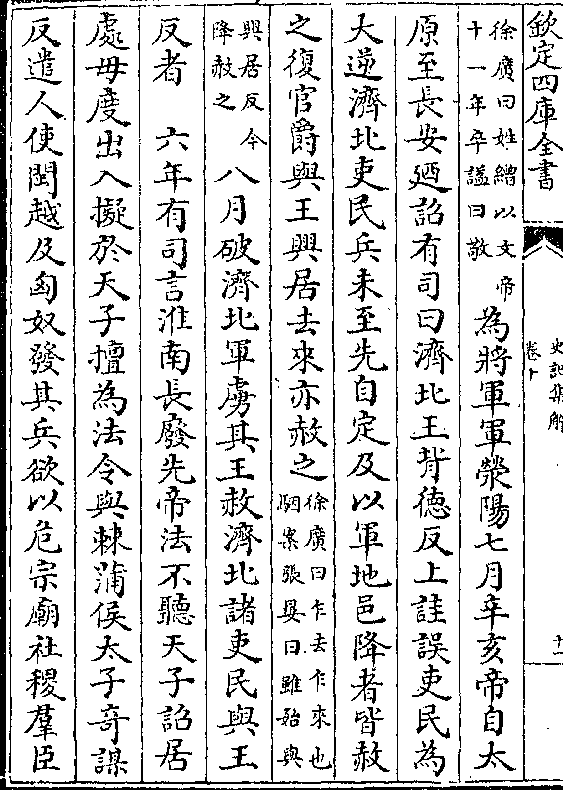 欽定四庫全書
史記集解
卷十
十一
徐廣曰姓繒以文帝
十一年卒諡曰敬
為將軍軍滎陽七月辛亥帝自太
原至長安廼詔有司曰濟北王背德反上詿誤吏民為
大逆濟北吏民兵未至先自定及以軍地邑降者皆赦
之復官爵與王興居去來亦赦之
徐廣曰乍去乍來也
駰案張晏曰雖始與
興居反今
降赦之
八月破濟北軍虜其王赦濟北諸吏民與王
反者　六年有司言淮南長廢先帝法不聽天子詔居
處毋度出入擬於天子擅為法令與棘蒲侯太子奇謀
反遣人使閩越及匈奴發其兵欲以危宗廟社稷羣臣